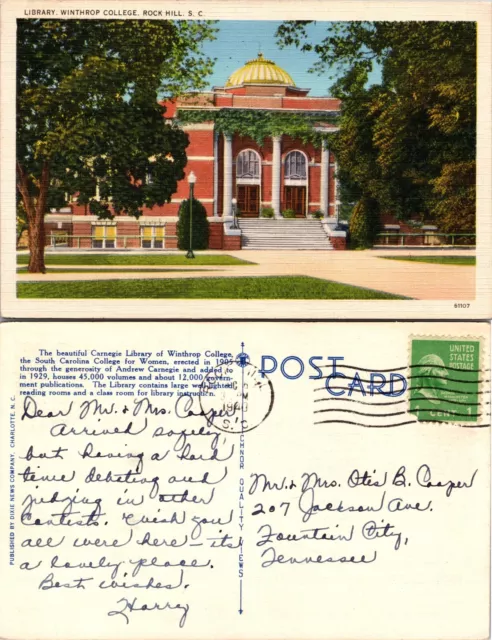 LIBRARY, WINTHROP COLLEGE, ROCK HILL, S. C.
61107
The beautiful Carnegie Library of Winthrop College,
the South Carolina College for Women, erected in 1905
through the generosity of Andrew Carnegie and added to
in 1929, houses 45,000 volumes and about 12,000 govern-
ment publications. The Library contains large well-lighted
reading rooms and a class room for library instruction.
POST CARD
UNITED
STATES
POSTAGE
1 CENT 1
1940
S. C.
Dear Mr. & Mrs. Cooper
Arrived safely,
but having a hard
time debating and
judging in other
contests. Wish you
all were here – its
a lovely place.
Best wishes.
Harry
Mr. & Mrs. Otis B. Cooper
207 Jackson Ave.
Fountain City,
Tennessee
PUBLISHED BY DIXIE NEWS COMPANY, CHARLOTTE, N. C.
TICHNOR QUALITY VIEWS